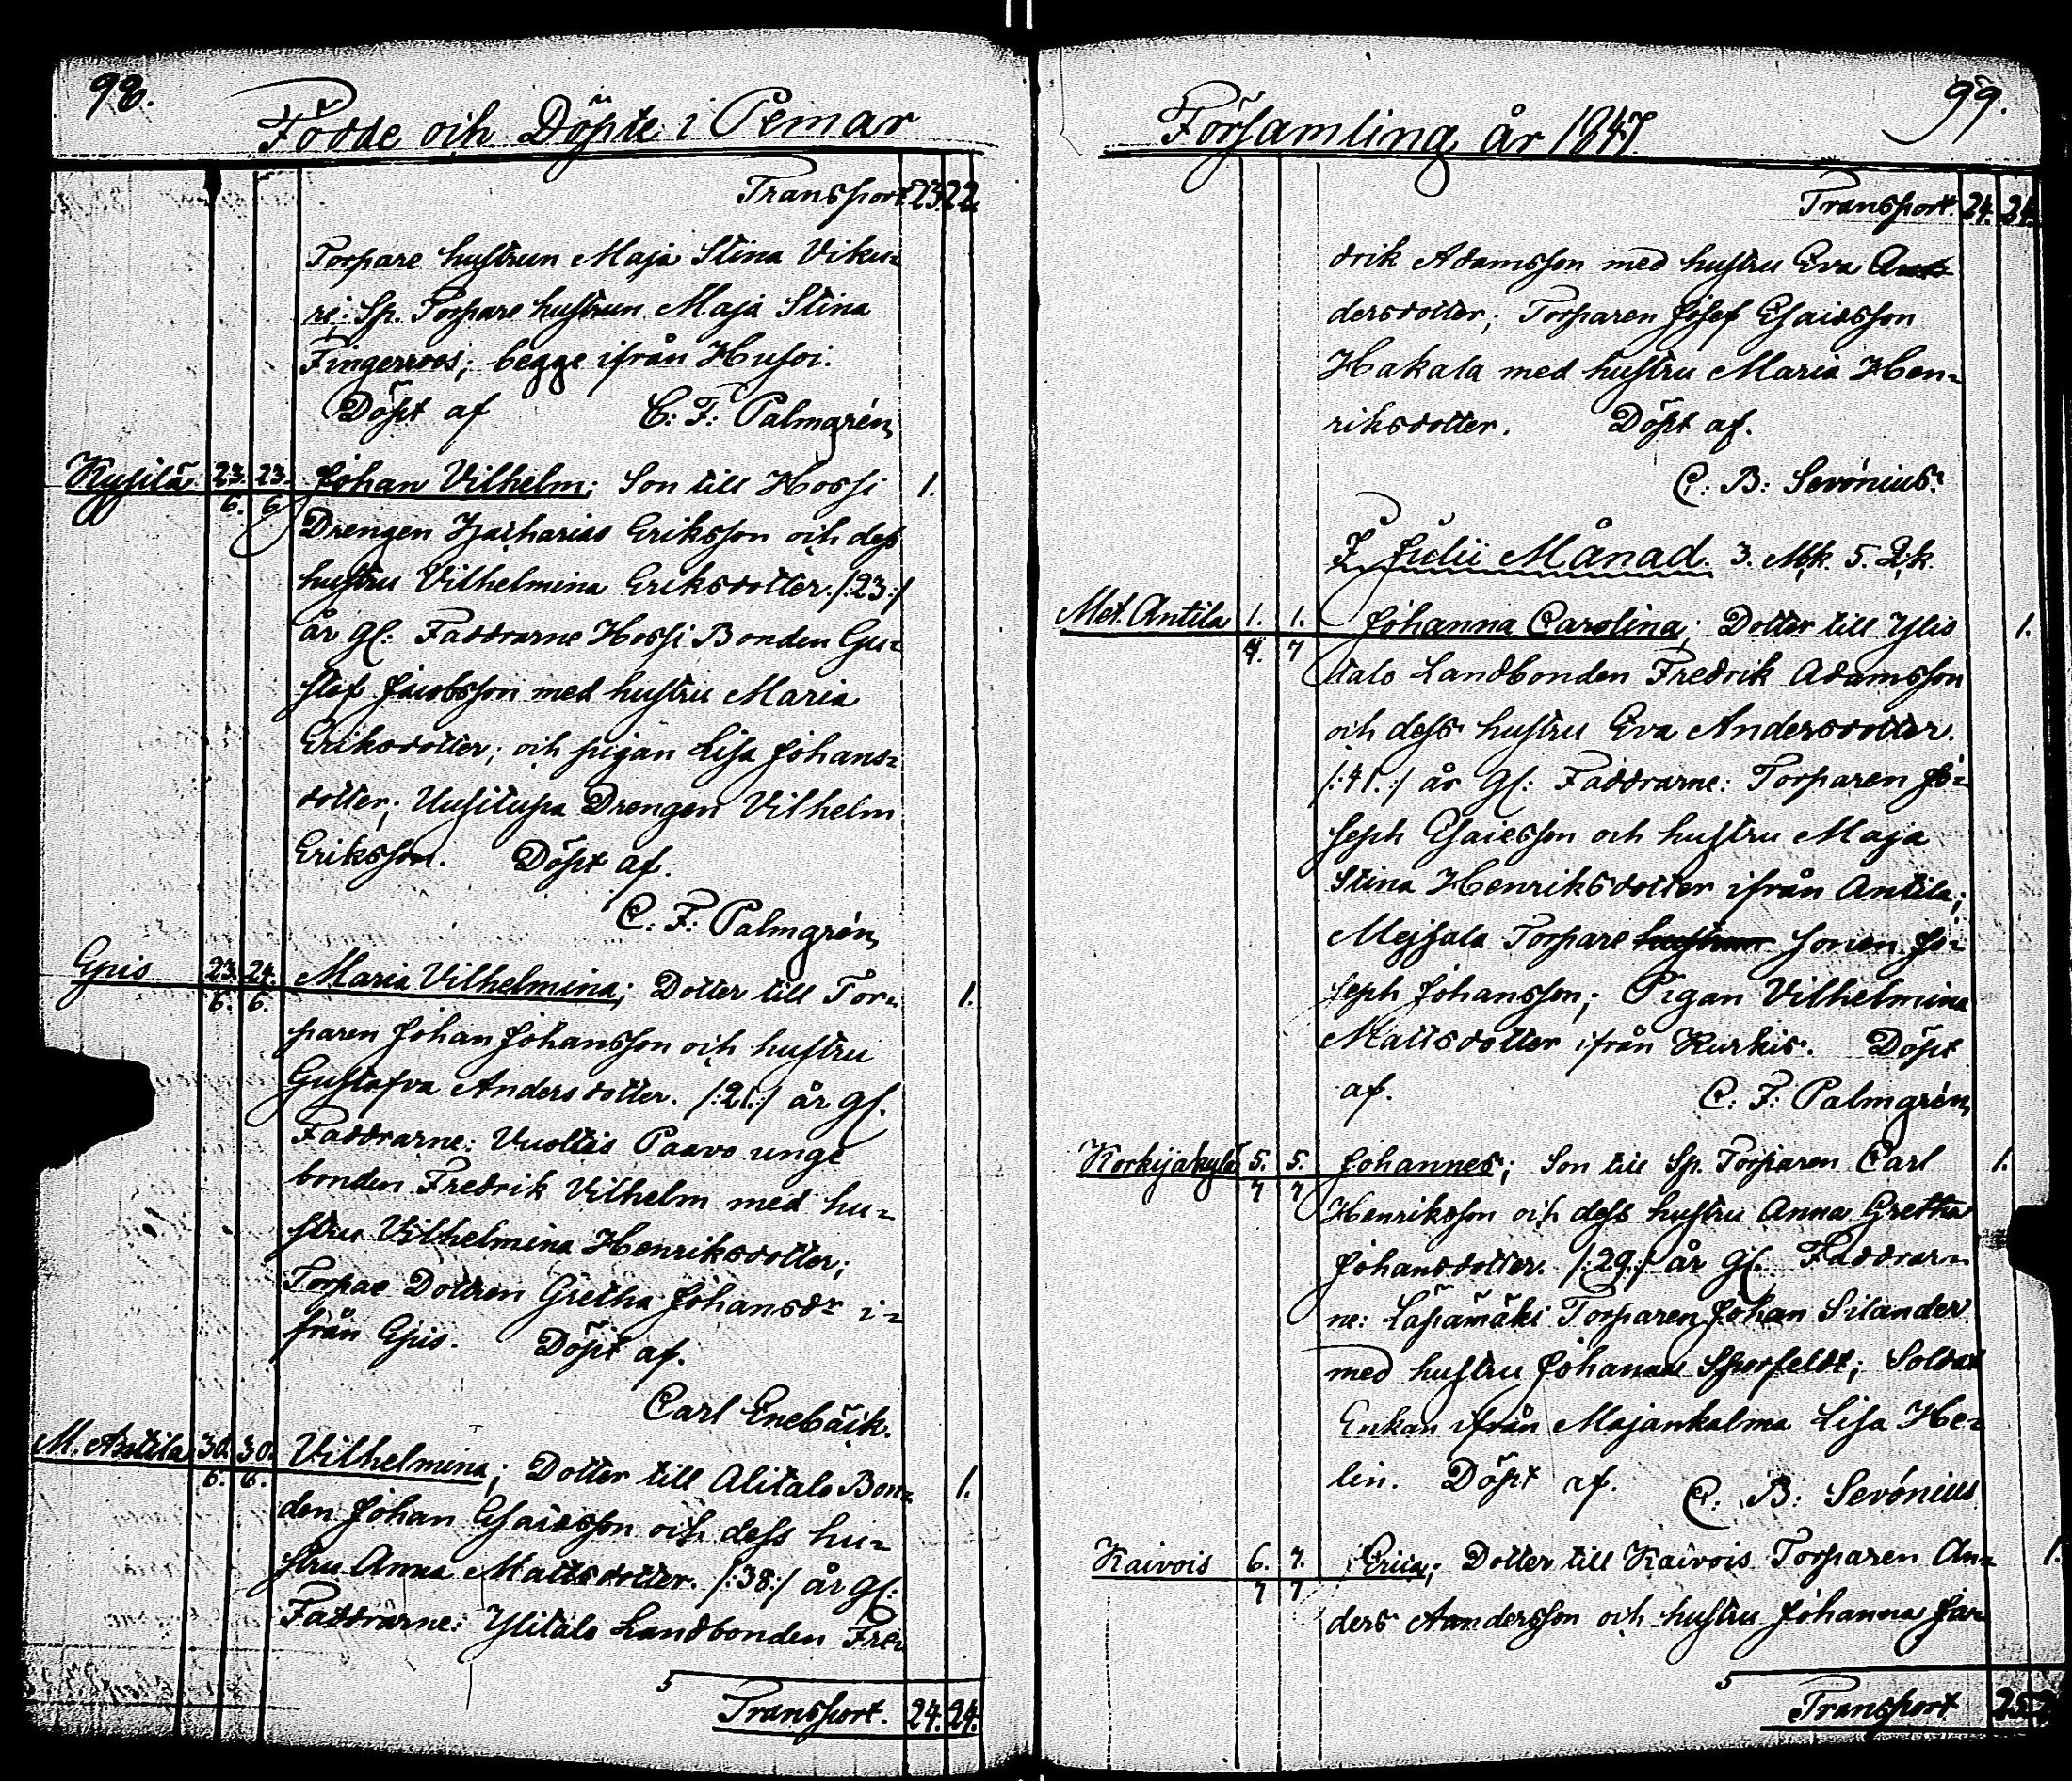 98.
Födde och Döpte i Pemar
Transport. 23. 22.
Torpare hustrun Maja Stina Viku=
ri; Sp. Torpare hustrun Maja Stina
Fingerroos; begge ifrån Husoi.
Döpt af C: F: Palmgrén
Kysilä 23. 23. Johan Vilhelm; Son till Hossi 1.
6. 6 Drengen Zacharias Eriksson och dess
hustru Vilhelmina Eriksdotter. /:23:/
år gl: Faddrarne Hossi Bonden Gu=
staf Jacobsson med hustru Maria
Eriksdotter; och pigan Lisa Johans=
dotter; Uusitupa Drengen Vilhelm
Eriksson. Döpt af.
C. F: Palmgrén
Gjis 23. 24. Maria Vilhelmina; Dotter till Tor= 1.
6. 6. paren Johan Johansson och hustru
Gustafva Andersdotter. /:21:/ år gl.
Faddrarne: Vuoltis Paavo unge
bonden Fredrik Vilhelm med hu=
stru Vilhelmina Henriksdotter;
Torpae Dottren Gretha Johansdr i=
från Gjis. Döpt af.
Carl Enebäck.
M. Antila 30. 30. Vilhelmina; Dotter till Alitalo Bon= 1.
6. 6. den Johan Esaiasson och dess hu=
stru Anna Mattsdotter. /:38:/ år gl:
Faddrarne: Ylitalo Landbonden Fre=
Transport. 24. 24.
99.
Församling år 1847.
Transport. 24. 24.
drik Adamsson med hustru Eva An
dersdotter; Torparen Josef Esaiasson
Hakala med hustru Maria Hen=
riksdotter. Döpt af.
C: B: Sevónius.
I Julii Månad. 3. Mk. 5. Qk.
Met. Antila 1. 1. Johanna Carolina; Dotter till Ylis 1.
7. 7 talo Landbonden Fredrik Adamsson
och dess hustru Eva Andersdotter.
/:41.:/ år gl: Faddrarne: Torparen Jo=
seph Esaiesson och hustru Maja
Stina Henriksdotter ifrån Antila;
Mejsala Torpare hustrun sonen Jo=
seph Johansson; Pigan Vilhelmina
Mattsdotter ifrån Kurkis. Döpt
af. C: F: Palmgrén
Korkijakylä 5. 5. Johannes; Son till Sp. Torparen Carl 1.
7 7 Henriksson och dess hustru Anna Gretha
Johansdotter. /:29.:/ år gl. Faddrar=
ne: Läpämäki Torparen Johan Silander
med hustru Johanna Sporfeldt; Soldat
Enkan ifrån Majankalma Lisa He=
lin. Döpt af. C: B: Sevónius
Kaivois 6. 7. Erica; Dotter till Kaivois Torparen An= 1.
7 7 ders Aandersson och hustru Johanna Jar
Transport 25.